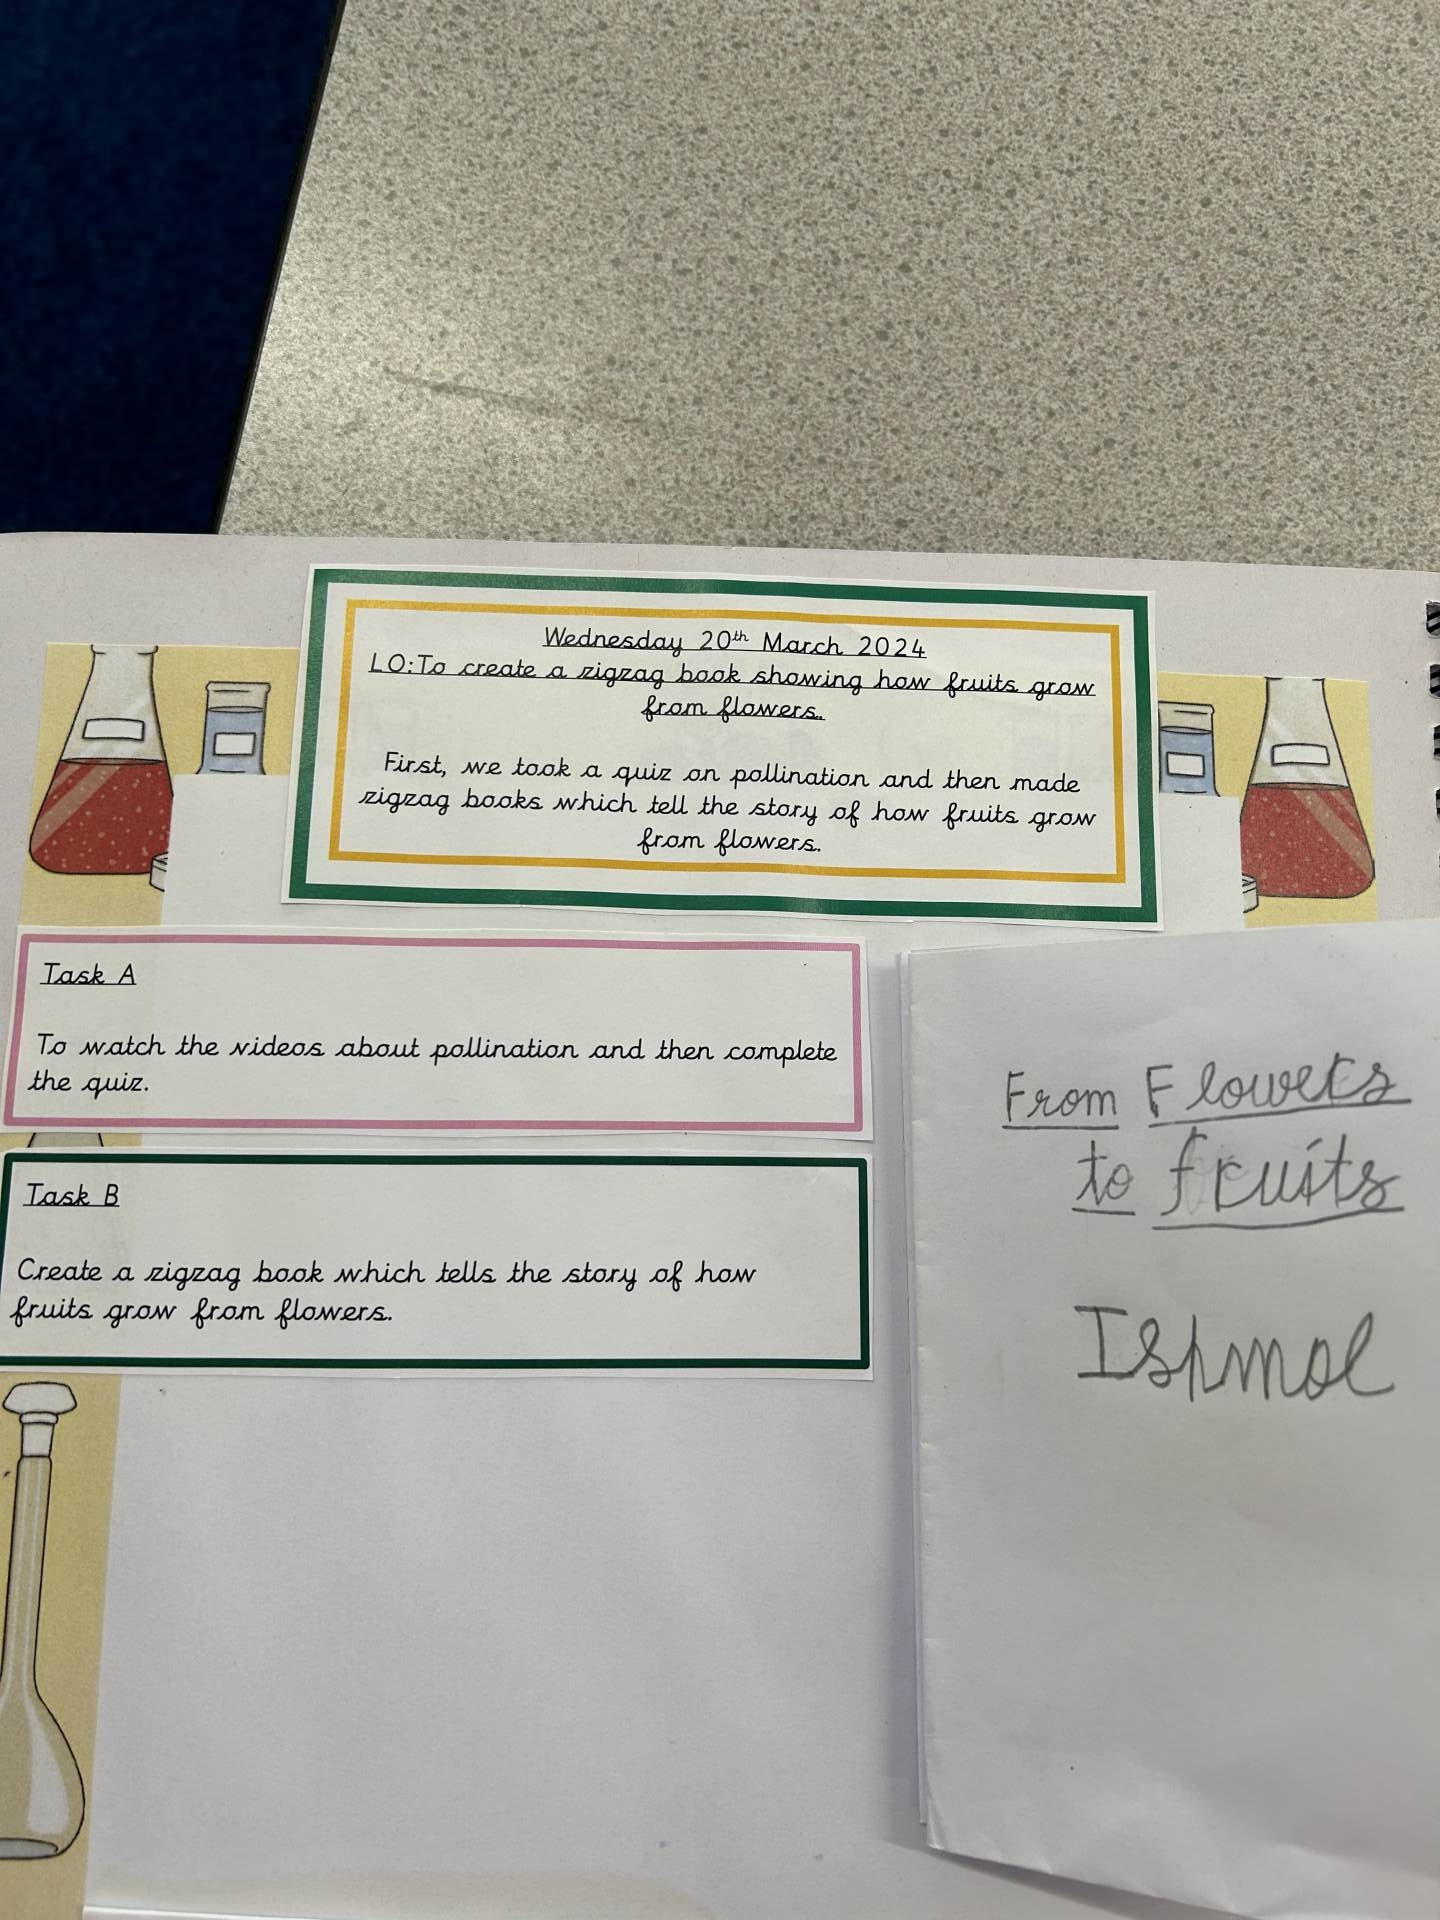 Wednesday 20th March 2024
LO:To create a zigzag book showing how fruits grow
from flowers..
First, we took a quiz on pollination and then made
zigzag books which tell the story of how fruits grow
from flowers.
Task A
To watch the videos about pollination and then complete
the quiz.
Task B
Create a zigzag book which tells the story of how
fruits grow from flowers.
From Flowers
to fruits